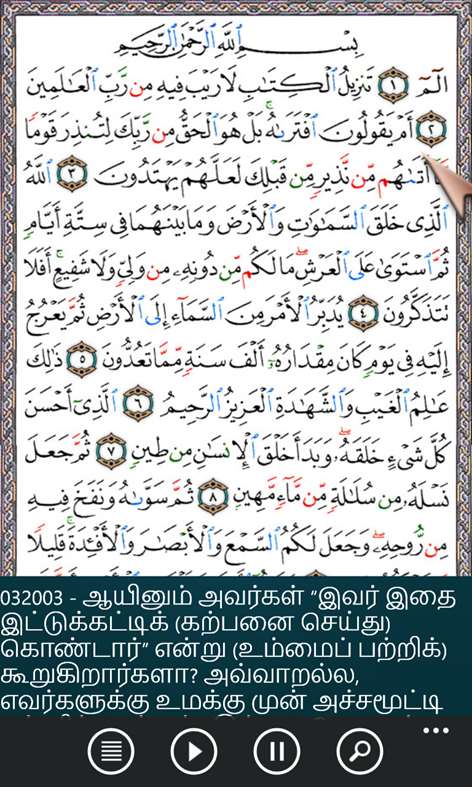 بِسْمِ اللَّهِ الرَّحْمَٰنِ الرَّحِيمِ
الٓمٓ ١ تَنزِيلُ الْكِتَابِ لَا رَيْبَ فِيهِ مِن رَّبِّ الْعَالَمِينَ
٢ أَمْ يَقُولُونَ افْتَرَاهُ ۚ بَلْ هُوَ الْحَقُّ مِن رَّبِّكَ لِتُنذِرَ قَوْمًا
مَّا أَتَاهُم مِّن نَّذِيرٍ مِّن قَبْلِكَ لَعَلَّهُمْ يَهْتَدُونَ ٣ اللَّهُ
الَّذِي خَلَقَ السَّمَاوَاتِ وَالْأَرْضَ وَمَا بَيْنَهُمَا فِي سِتَّةِ أَيَّامٍ
ثُمَّ اسْتَوَىٰ عَلَى الْعَرْشِ ۖ مَا لَكُم مِّن دُونِهِ مِن وَلِيٍّ وَلَا شَفِيعٍ ۚ أَفَلَا
تَتَذَكَّرُونَ ٤ يُدَبِّرُ الْأَمْرَ مِنَ السَّمَاءِ إِلَى الْأَرْضِ ثُمَّ يَعْرُجُ
إِلَيْهِ فِي يَوْمٍ كَانَ مِقْدَارُهُ أَلْفَ سَنَةٍ مِّمَّا تَعُدُّونَ ٥ ذَٰلِكَ
عَالِمُ الْغَيْبِ وَالشَّهَادَةِ الْعَزِيزُ الرَّحِيمُ ٦ الَّذِي أَحْسَنَ
كُلَّ شَيْءٍ خَلَقَهُ ۖ وَبَدَأَ خَلْقَ الْإِنسَانِ مِن طِينٍ ٧ ثُمَّ جَعَلَ
نَسْلَهُ مِن سُلَالَةٍ مِّن مَّاءٍ مَّهِينٍ ٨ ثُمَّ سَوَّاهُ وَنَفَخَ فِيهِ
مِن رُّوحِهِ ۖ وَجَعَلَ لَكُمُ السَّمْعَ وَالْأَبْصَارَ وَالْأَفْئِدَةَ ۚ قَلِيلًا
032003 - ஆயினும் அவர்கள் “இவர் இதை
இட்டுக்கட்டிக் (கற்பனை செய்து)
கொண்டார்” என்று (உம்மைப் பற்றிக்)
கூறுகிறார்களா? அவ்வாறல்ல,
எவர்களுக்கு உமக்கு முன் அச்சமூட்டி